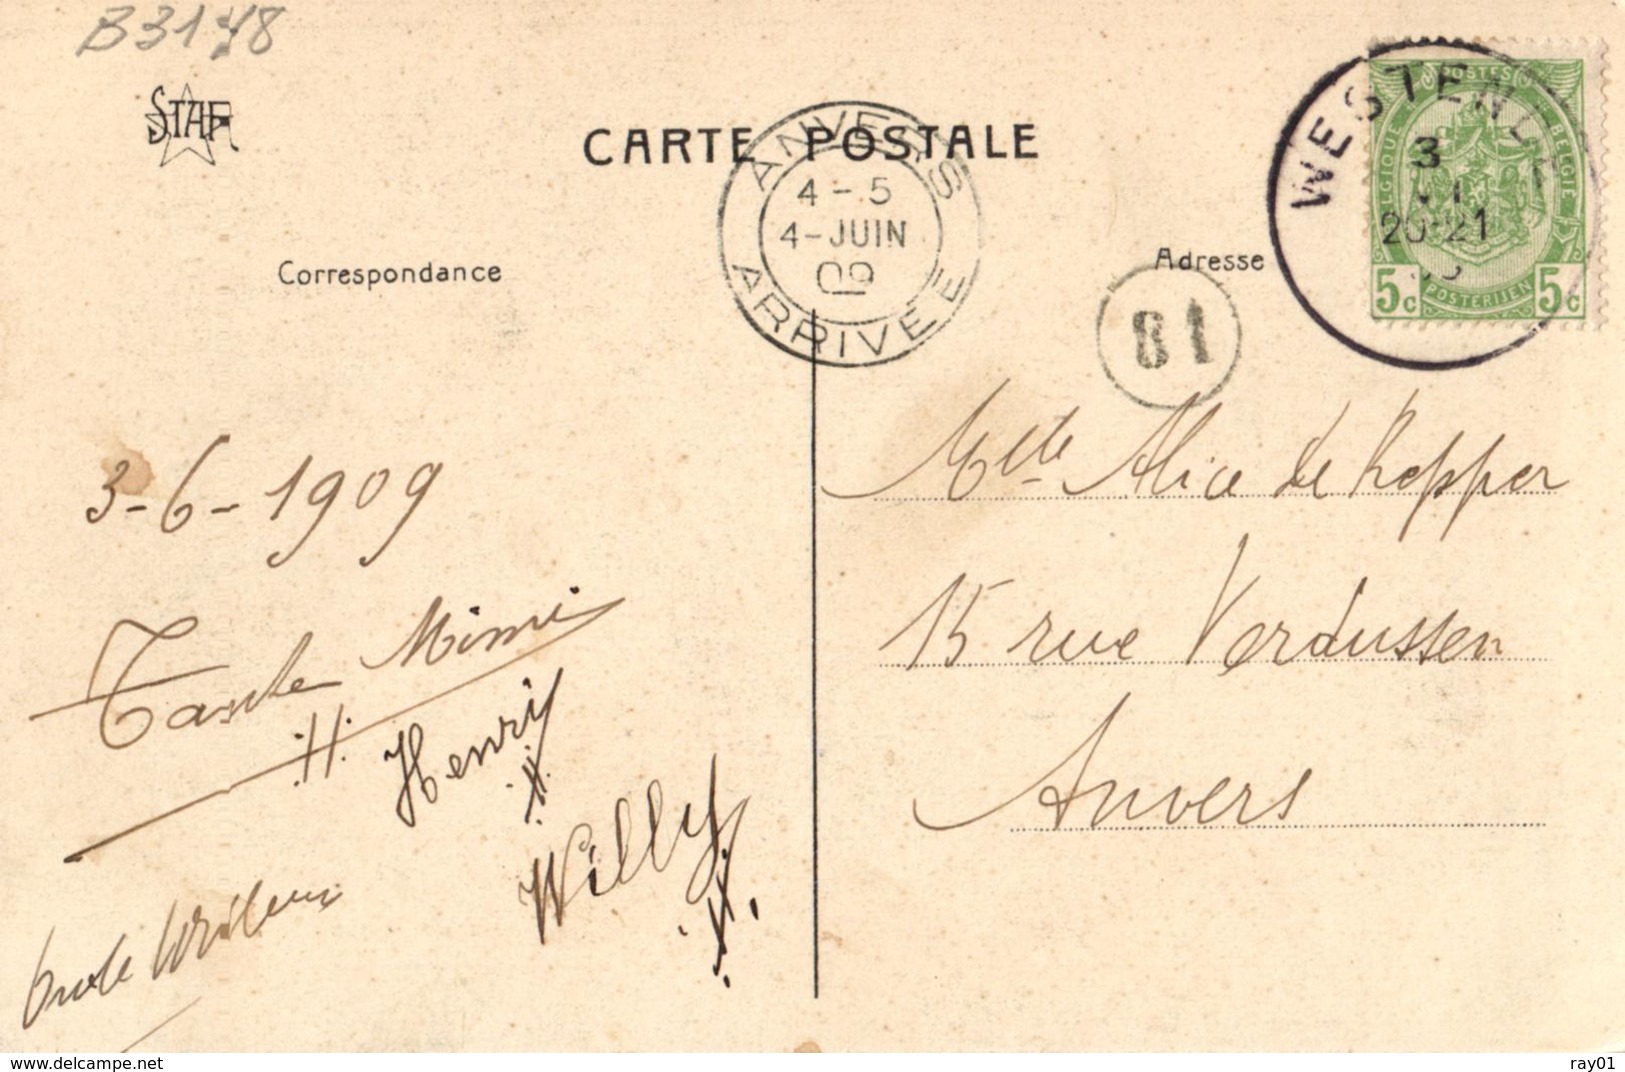 B3178
STAR
CARTE POSTALE
ANVERS
4-5
4-JUIN
09
ARRIVÉE
WESTENDE
3
VI
20-21
BELGIQUE
POSTES
BELGIË
POSTERIJEN
5c 5c
Correspondance
Adresse
81
3-6-1909
Mlle Alice de
15 rue Verdussen
Anvers
Tante Mimi
Henri
Willy
www.delcampe.net
ray01